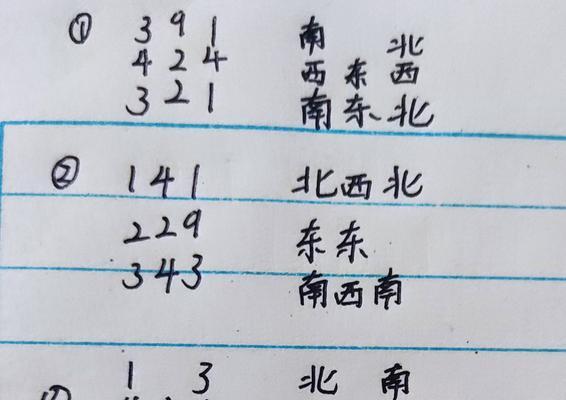 ① 3 9 1 南 北
4 2 4 西 东 西
3 2 1 南 东、北
② 1 4 1 北 西 北
2 2 9 东 东
3 4 3 南 西 南
1 3 北 南